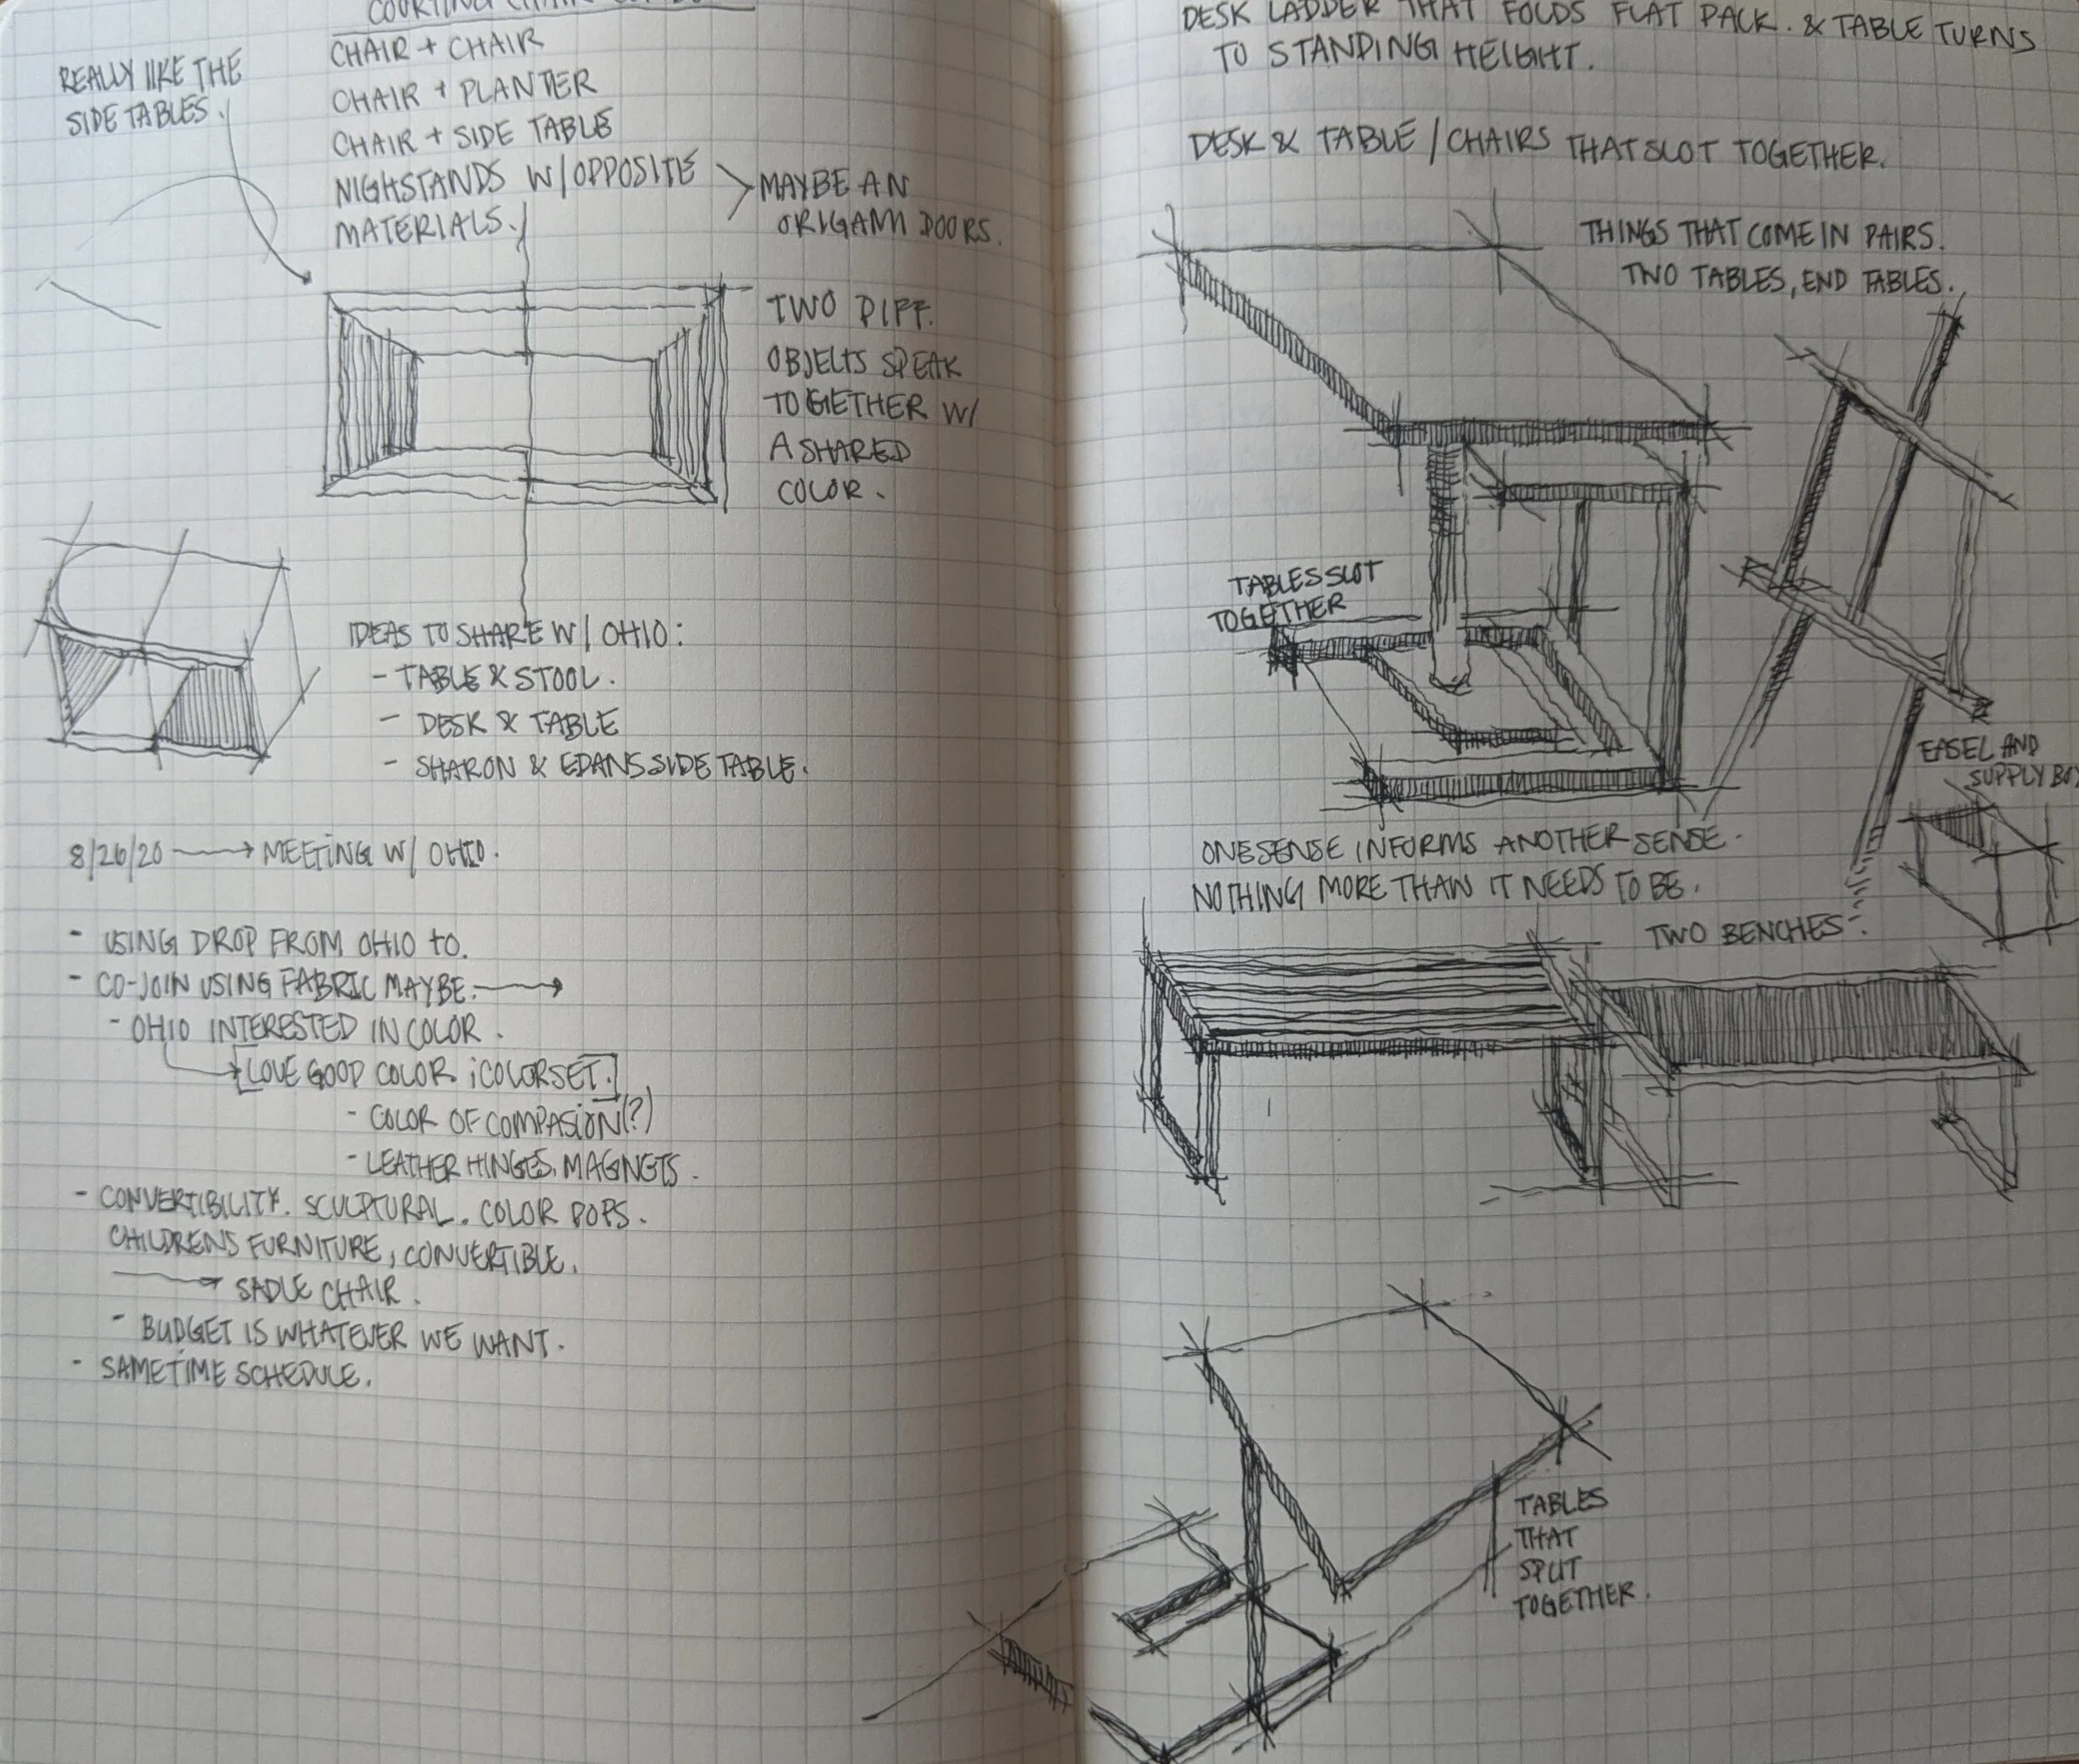 COURTING CHAIR
CHAIR + CHAIR
CHAIR + PLANTER
CHAIR + SIDE TABLE
NIGHSTANDS W/OPPOSITE
MATERIALS.
REALLY LIKE THE
SIDE TABLES.
MAYBE AN
ORIGAMI DOORS.
TWO DIFF.
OBJECTS SPEAK
TOGETHER W/
A SHARED
COLOR.
IDEAS TO SHARE W/ OHIO:
- TABLE & STOOL.
- DESK & TABLE
- SHARON & EDANS SIDE TABLE.
8/26/20 → MEETING W/ OHIO.
- USING DROP FROM OHIO to.
- CO-JOIN USING FABRIC MAYBE. →
- OHIO INTERESTED IN COLOR.
→ [LOVE GOOD COLOR ¡COLORSET.]
- COLOR OF COMPASION(?)
- LEATHER HINGES, MAGNETS.
- CONVERTIBILITY. SCULPTURAL. COLOR POPS.
CHILDRENS FURNITURE, CONVERTIBLE.
→ SADLE CHAIR.
- BUDGET IS WHATEVER WE WANT.
- SAMETIME SCHEDULE.
DESK LADDER THAT FOLDS FLAT PACK. & TABLE TURNS
TO STANDING HEIGHT.
DESK & TABLE / CHAIRS THAT SLOT TOGETHER.
THINGS THAT COME IN PAIRS.
TWO TABLES, END TABLES.
TABLES SLOT
TOGETHER
EASEL AND
SUPPLY BOX
ONE SENSE INFORMS ANOTHER SENSE.
NOTHING MORE THAN IT NEEDS TO BE.
TWO BENCHES:
TABLES
THAT
SPLIT
TOGETHER.